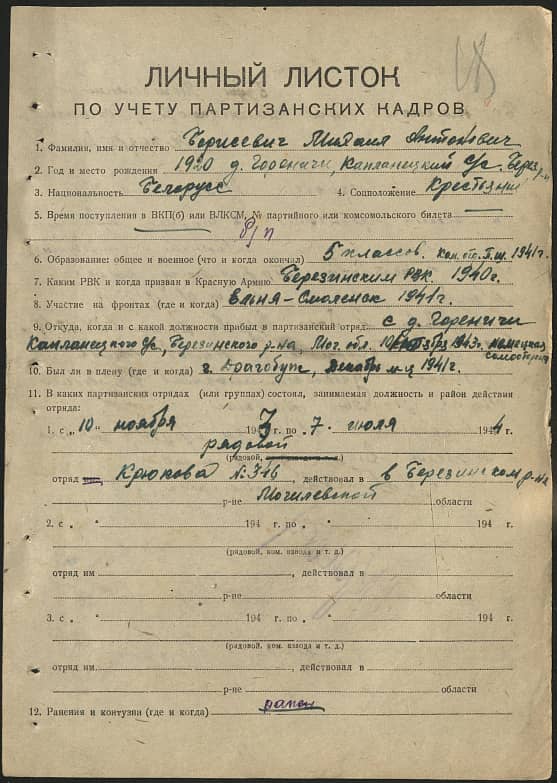 ЛИЧНЫЙ ЛИСТОК
ПО УЧЕТУ ПАРТИЗАНСКИХ КАДРОВ
1. Фамилия, имя и отчество Борисевич Михаил Антонович
2. Год и место рождения 1920 д. Гореничи, Капланецкий с/с. Берез. р-н
3. Национальность Белорусс 4. Соцположение Крестьянин
5. Время поступления в ВКП(б) или ВЛКСМ, № партийного или комсомольского билета
б/п
6. Образование: общее и военное (что и когда окончал) 5 классов. 1941г.
7. Каким РВК и когда призван в Красную Армию Березинским РВК 1940г.
8. Участие на фронтах (где и когда) Ельня-Смоленск 1941г.
9. Откуда, когда и с какой должности прибыл в партизанский отряд с д. Гореничи
Капланецкого с/с, Березинского р-на, Мог. обл. 1943г. немецкая
самооборона
10. Был ли в плену (где и когда) г. Драгобуж, Декабрь м-ц 1941г.
11. В каких партизанских отрядах (или группах) состоял, занимаемая должность и район действия
отряда:
1. с „ 10 “ ноября 1943 г. по „ 7 “ июля 1944
рядовой
(рядовой,
отряд Крюкова №716, действовал в в Березинском р-не
р-не Могилевской области
2. с „ “ 194 г. по „ “ 194 г.
(рядовой, ком. взвода и т. д.)
отряд им , действовал в
р-не области
3. с „ “ 194 г. по „ “ 194 г.
(рядовой, ком. взвода и т. д.)
отряд им , действовал в
р-не области
12. Ранения и контузии (где и когда) ранен